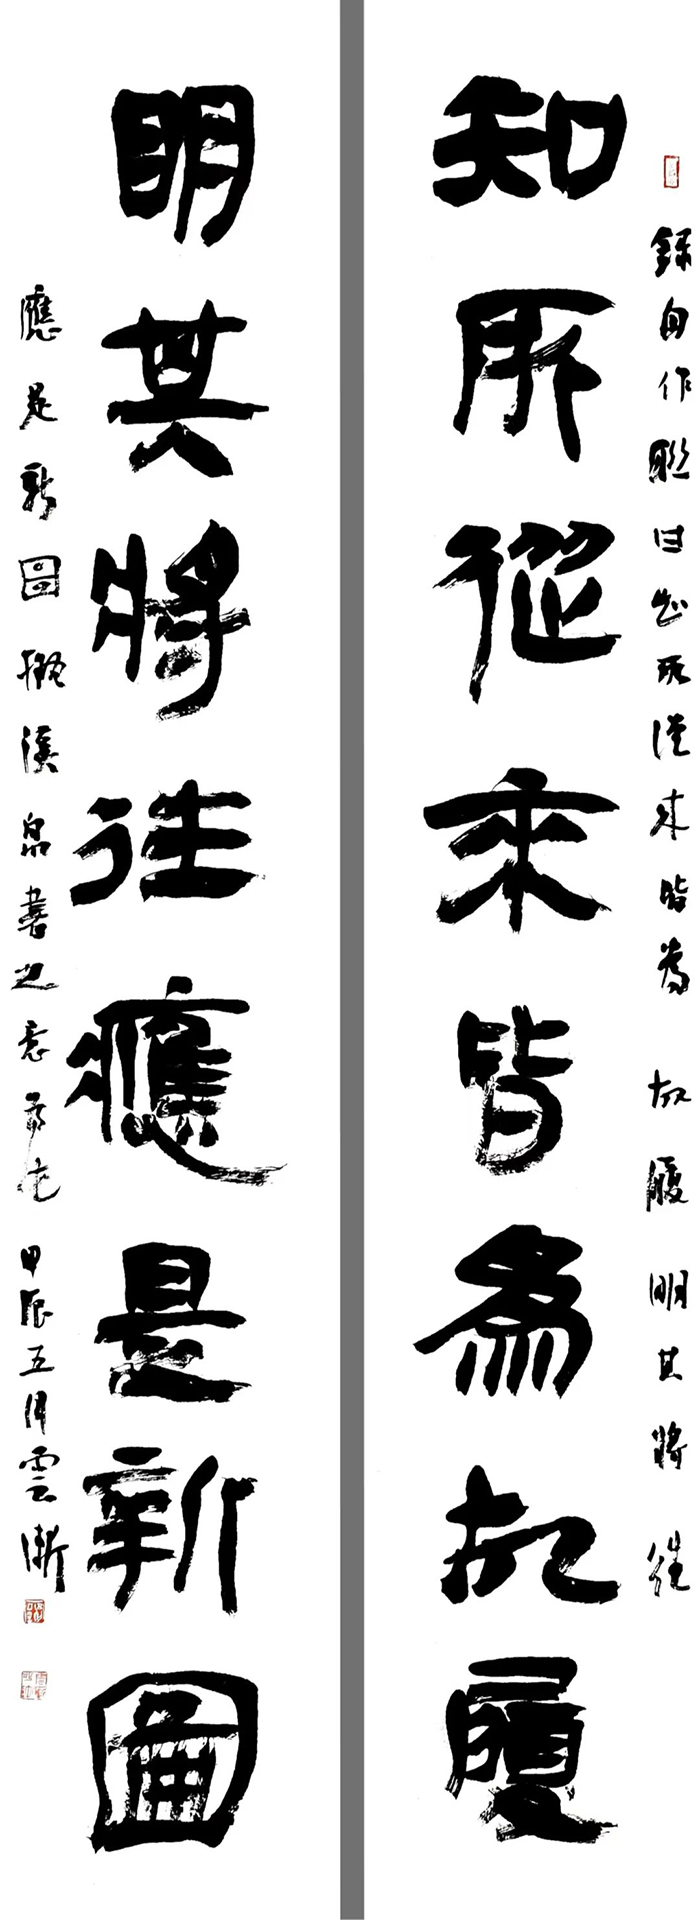 知所從來皆為故履
明其將往應是新圖
錄自作聯曰知所從來皆為故履明其將往
應是新圖擬漢帛書之意 甲辰五月雲漸